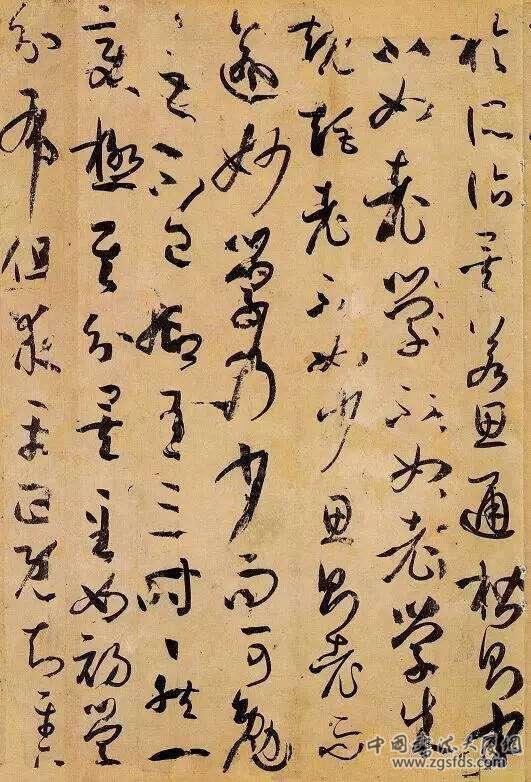 於所詣矣若思通楷則少
不如老學不如老學成
規矩老不如少思則老而
逾妙學乃少而可勉
〻之不已抑有三時〻然一
變極其分矣至如初學
分布但求平正既知平
中国书法大学网
www.zgsfds.com